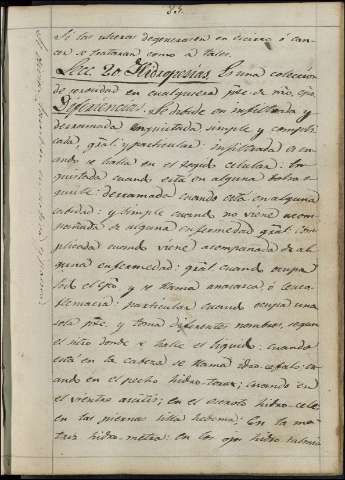 33.
Si las ulceras degenerasen en cicero ó can-
cer se trataran como á tales.
Lecc. 20 Hidropesias. Es una coleccion
de serosidad en cualquiera pte. de nro. cpo.
Diferencias. Se divide en infiltrada y
derramada enquistada simple y compli-
cada, gral. y particular. Infiltrada cu-
ando se halla en el tegido celular: En-
quistada cuando está en alguna bolsa o
quiste: derramada cuando está en alguna
cabidad: y simple cuando no viene acom-
pañada de alguna enfermedad gral: com-
plicada cuando viene acompañada de al-
guna enfermedad: gral cuando ocupa
todo el cpo. y se llama anasarca, ó leuco-
flemacia: particular cuando ocupa una
sola pte. y toma diferentes nombres, segun
el sitio donde se halla el liquido: cuando
está en la cabeza se llama idro-cefalo: cu-
ando en el pecho hidro-torax; cuando en
el vientre ascitis; en el escroto hidro-cele
en las piernas hedema: En la ma-
triz hidro-metra: en los ojos hidro